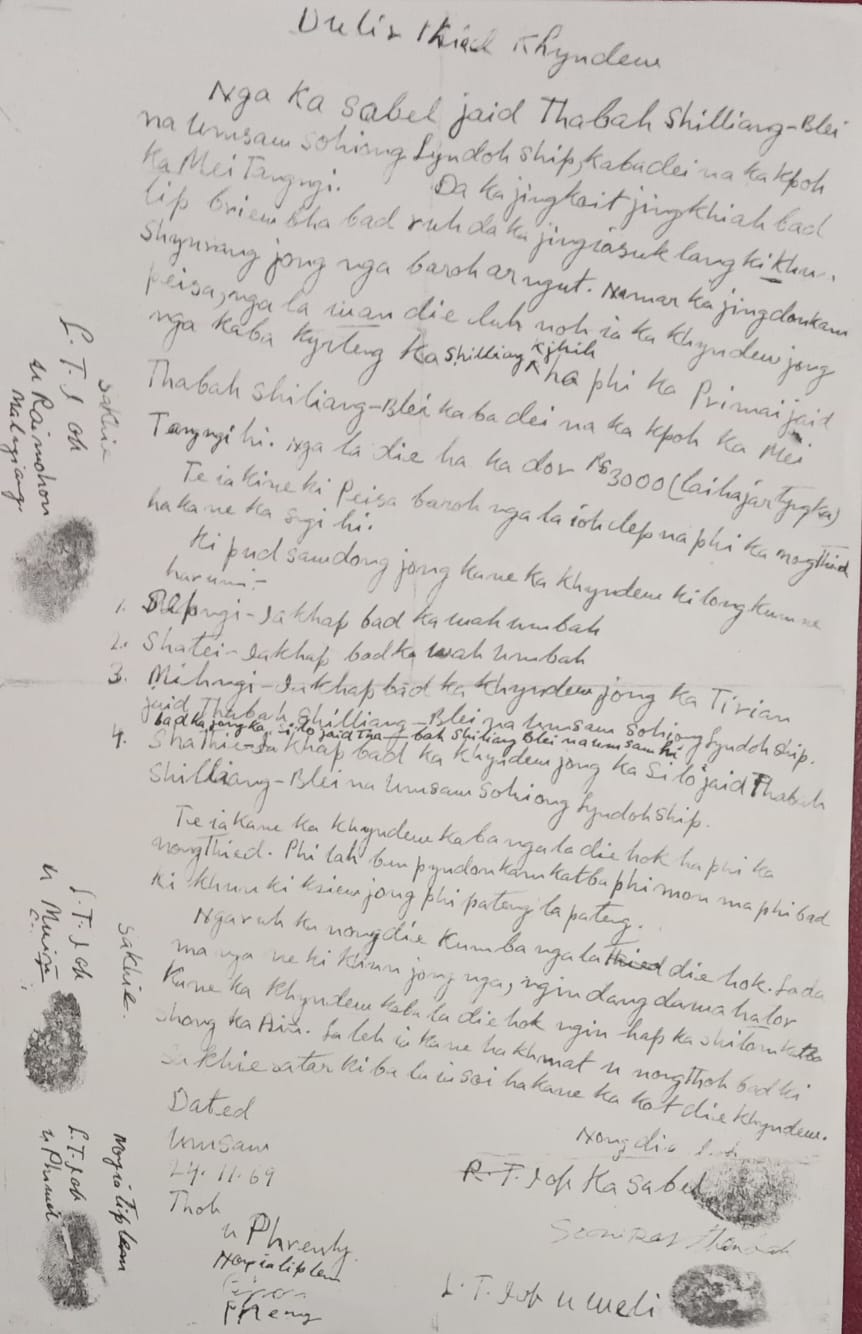 Dulir thied Khyndew
Nga Ka Sabel jaid Thabah Shilliang-Blei
na Umsaw Sohiong Lyndoh ship, kaba dei na ka kpoh
Ka Mei Tangngi. Da ka jingkoit jingkhiah bad
tip briew bha bad ruh da ka jingiasuk lang ki khun
shynrang jong nga baroh ar ngut. Namar ka jingdonkam
peisa, nga la wan die luh noh ia ka khyndew jong
nga kaba kyrteng Ka Shilliang ha phi ka Primai jaid
Thabah Shiliang-Blei kaba dei na ka kpoh ka Mei
Tangngi hi. Nga la die ha ka dor Rs 3000 (lai hajar tyngka)
Te ia kine ki Peisa baroh nga la ioh dep na phi ka nongthied
ha kane ka sngi hi.
Ki pud sawdong jong kane ka khyndew ki long kumne
harum:-
1. Sepngi - Ia khap bad ka wah umbah
2. Shatei - Ia khap bad ka wah Umbah
3. Mihngi - Ia khap bad ka khyndew jong ka Tirian
jaid Thabah Shilliang-Blei na Umsaw Sohiong Lyndoh ship.
bad ka jong ka Silo jaid Thabah Shiliang Blei na umsaw hi
4. Shathie - Ia khap bad ka khyndew jong ka Silo jaid Thabah
Shilliang-Blei na Umsaw Sohiong Lyndoh ship.
Te ia kane ka khyndew kaba nga la die hok ha phi ka
nongthied. Phi lah ban pyndonkam katba phi mon ma phi bad
ki khun ki ksiew jong phi pateng la pateng.
Nga ruh ka nongdie kumba nga la thied die hok. Lada
ma nga ne ki khun jong nga, ngin dang dawa halor
kane ka khyndew kaba la die hok ngin hap ka shitom katba
shong ka Ain. La leh ia kane ha khmat u nongthoh bad ki
sakhie satar kiba la ia soi ha kane ka kot die khyndew.
Dated
Umsaw
24.11.69
Thoh
u Phrenly
Nongialiplem
Nongdie
L.T.I of Ka Sabel
L.T.I of u Weli
Sakhie
L.T.I of
u Raimohon
Malngiang
Sakhie.
L.T.I of
L.T.I of